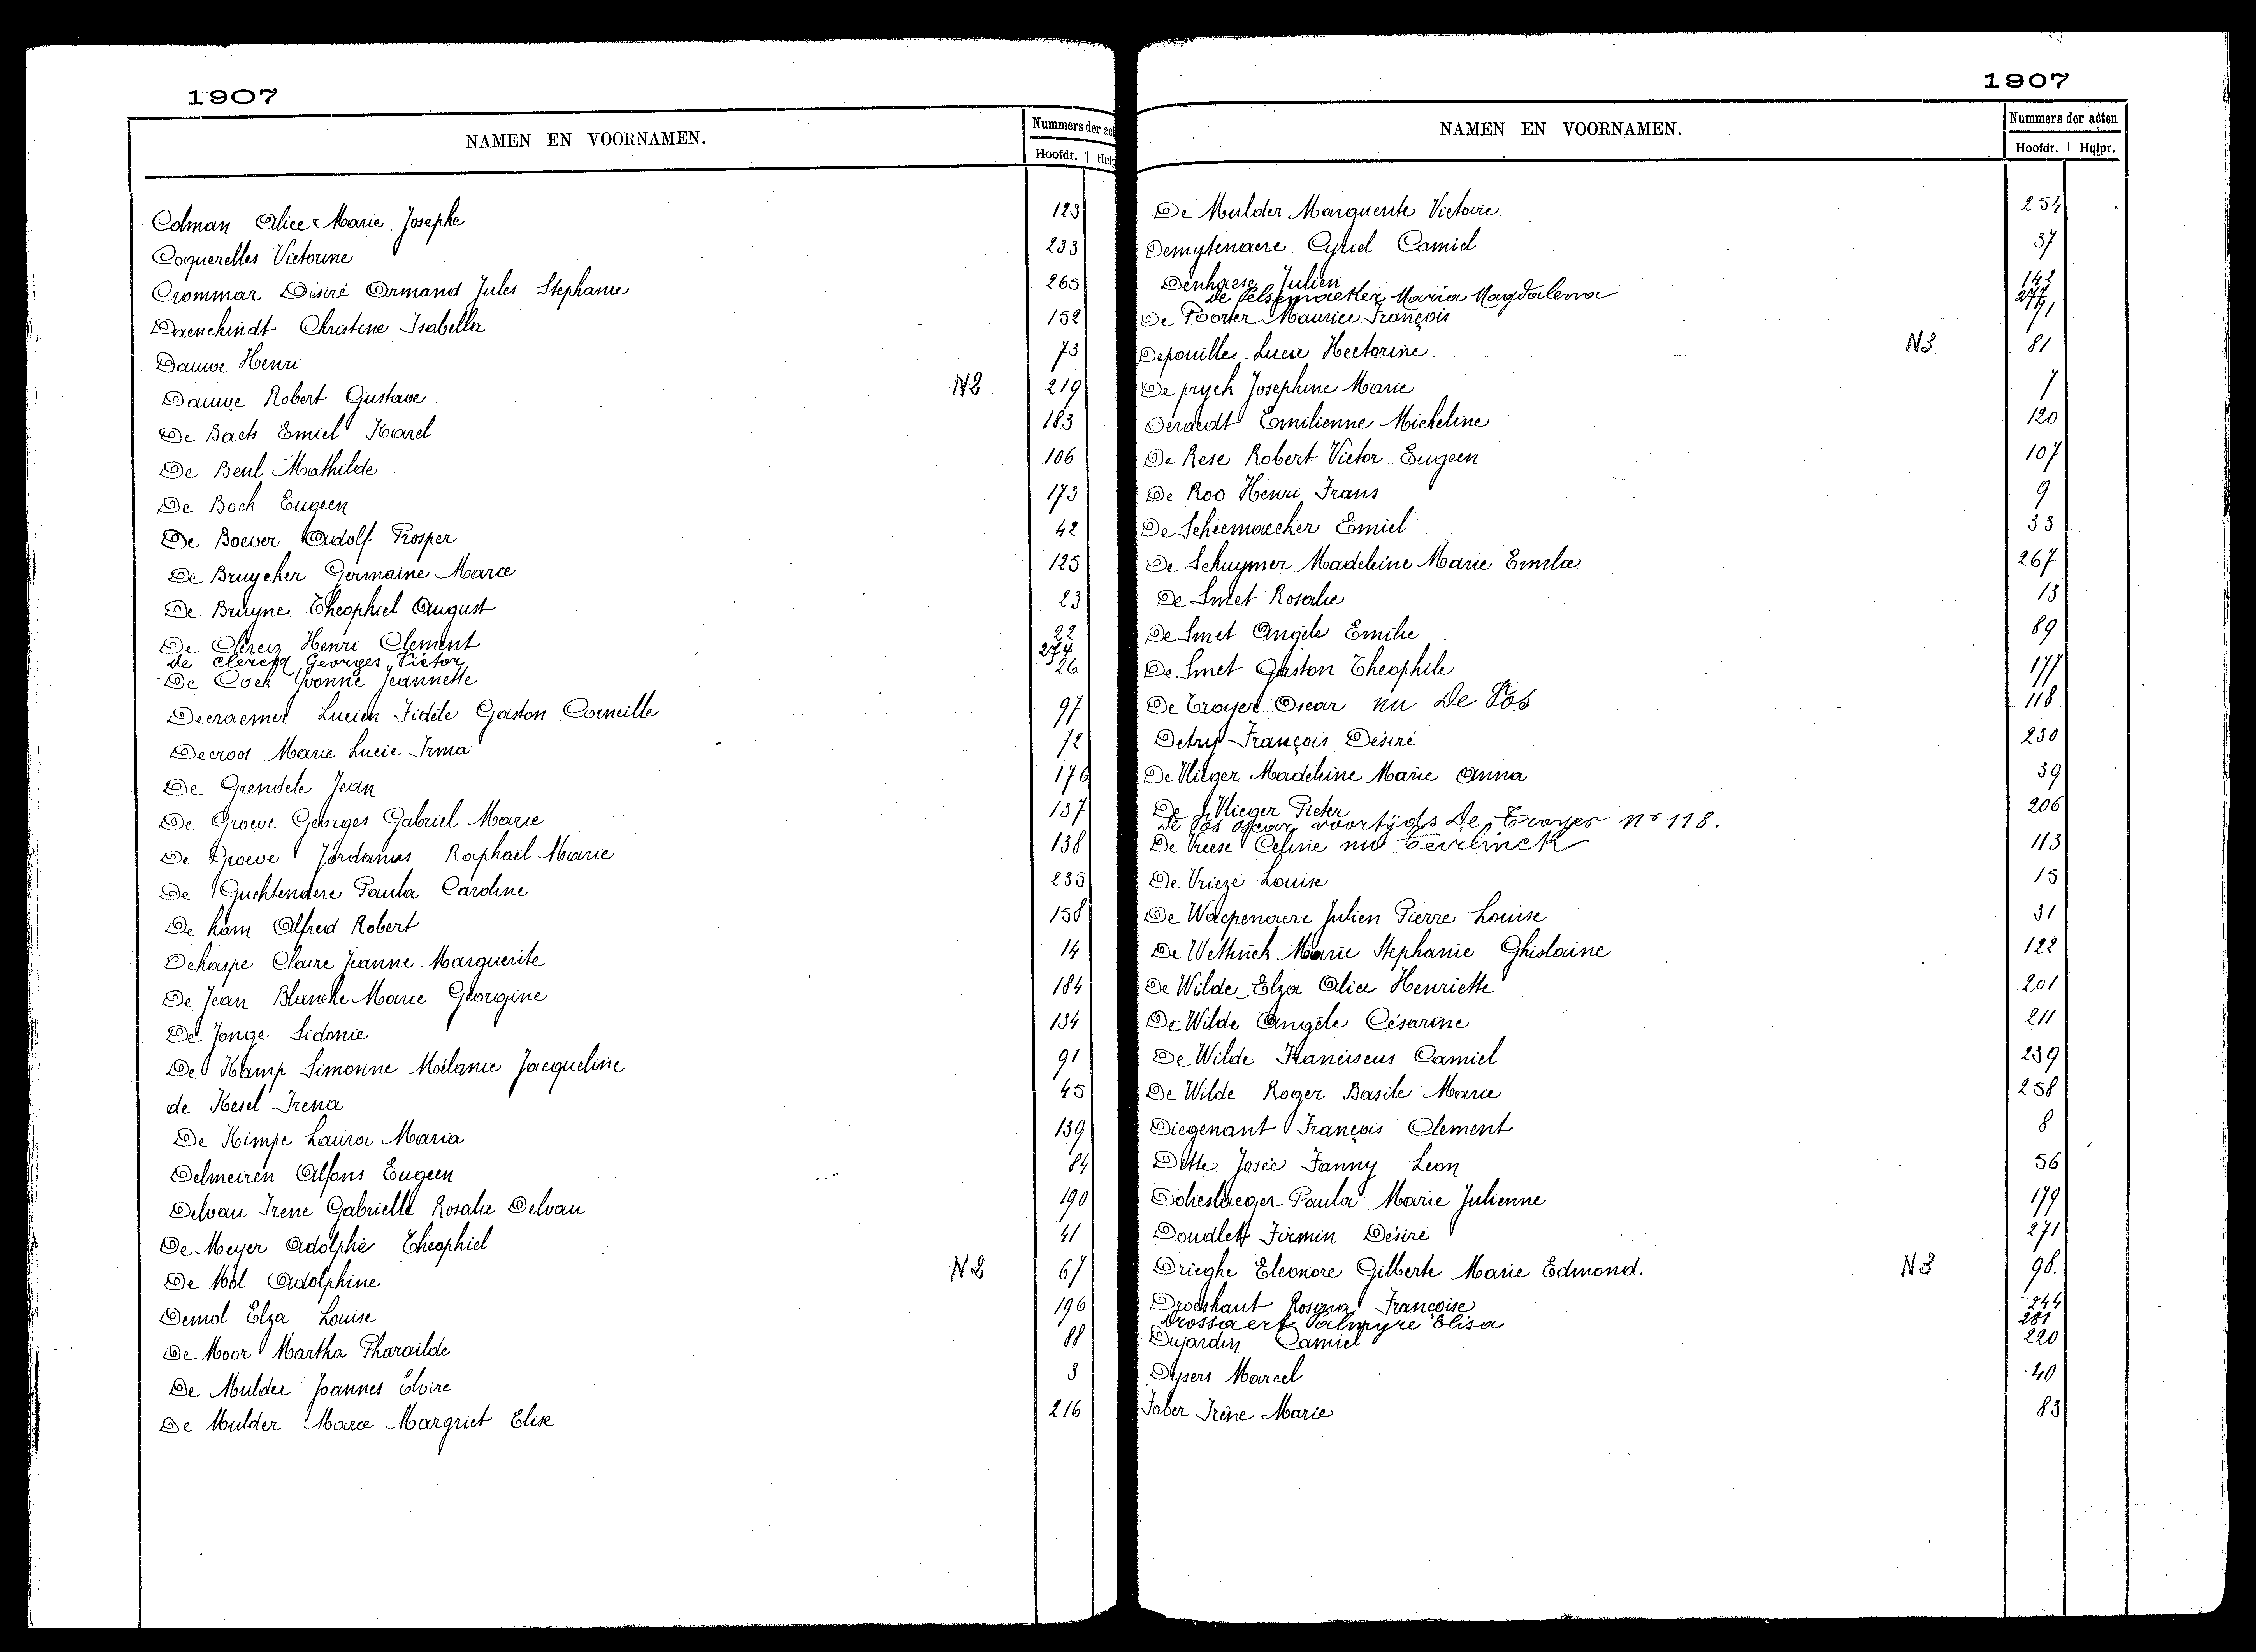 1907
NAMEN EN VOORNAMEN.
Nummers der act
Hoofdr. Hulp
Colman Alice Marie Josephe 123
Coquerelles Victorine 233
Crommar Désiré Armand Jules Stephanie 265
Daenekindt Christine Isabella 152
Dauwe Henri 73
Dauwe Robert Gustave N2 219
De Baets Emiel Karel 183
De Beul Mathilde 106
De Bock Eugeen 173
De Boever Adolf Prosper 42
De Bruycker Germaine Marie 125
De Bruyne Theophiel August 23
De Clercq Henri Clement 22
de clercq Georges Victor 274
De Cock Yvonne Jeannette 26
Decraemer Lucien Fidéle Gaston Corneille 97
Decroos Marie Lucie Irma 72
De Grendele Jean 176
De Groeve Georges Gabriel Marie 137
De Groeve Jordanus Raphaël Marie 138
De Guchtenaere Paula Caroline 235
De ham Alfred Robert 158
Dehaspe Claire Jeanne Marguerite 14
De Jean Blanche Marie Georgine 184
De Jonge Sidonie 134
De Kamp Simonne Mélanie Jacqueline 91
de Kesel Irena 45
De Kimpe Laura Maria 139
Delmeiren Alfons Eugeen 84
Delvau Irene Gabrielle Rosalie Delvau 190
De Meyer Adolphe Theophiel 41
De Mol Adolphine N2 67
Demol Elza Louise 196
De Moor Martha Pharailde 88
De Mulder Joannes Elvire 3
De Mulder Marie Margriet Elise 216
1907
NAMEN EN VOORNAMEN.
Nummers der acten
Hoofdr. Hulpr.
De Mulder Marguerite Victoire 254
Demytenaere Cyriel Camiel 37
Denhaese Julien 142
de Pelsemaeker Maria Magdalena 277
De Poorter Maurice François
Depouille Lucie Hectorine N3 81
De pryck Josephine Marie 7
Deraedt Emilienne Micheline 120
De Rese Robert Victor Eugeen 107
De Roo Henri Frans 9
De Scheemaecker Emiel 33
De Schuymer Madeleine Marie Emilie 267
De Smet Rosalie 13
De Smet Angèle Emilie 89
De Smet Gaston Theophile 177
De Troyer Oscar nu De Vos 118
Detry François Désiré 230
De Vlieger Madeleine Marie Anna 39
De Vlieger Pieter 206
de Vos Oscar voortijds De Troyer nr 118.
De Vreese Celine nu Gevelinck 113
De Vrieze Louise 15
De Waepenaere Julien Pierre Louise 31
De Wettinck Marie Stephanie Ghislaine 122
De Wilde Elza Alice Henriette 201
De Wilde Angèle Césarine 211
De Wilde Franciscus Camiel 239
De Wilde Roger Basile Marie 258
Diegenant François Clement 8
Ditte Josée Fanny Leon 56
Doheslaeger Paula Marie Julienne 179
Doudlet Firmin Désiré 271
Drieghe Eleonore Gilberte Marie Edmond. N3 98.
Droeshaut Rosina Françoise 244
Drossaert Palmyre Elisa 281
Dujardin Camiel 220
Dysers Marcel 40
Faber Irène Marie 83